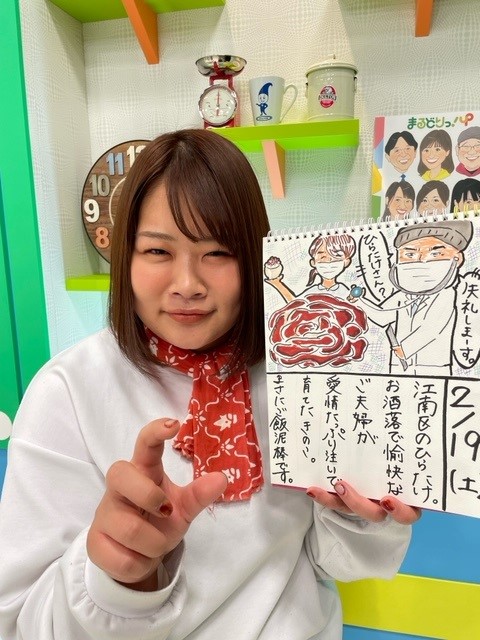 まるどりっ!UP
11
12
10
9
8
ひらたけさん?
失礼しまーす。
2/19(土)
江南区のひらたけ。
お洒落で愉快な
ご夫婦が
愛情たっぷり注いで
育てたきのこ。
まさにご飯泥棒です。